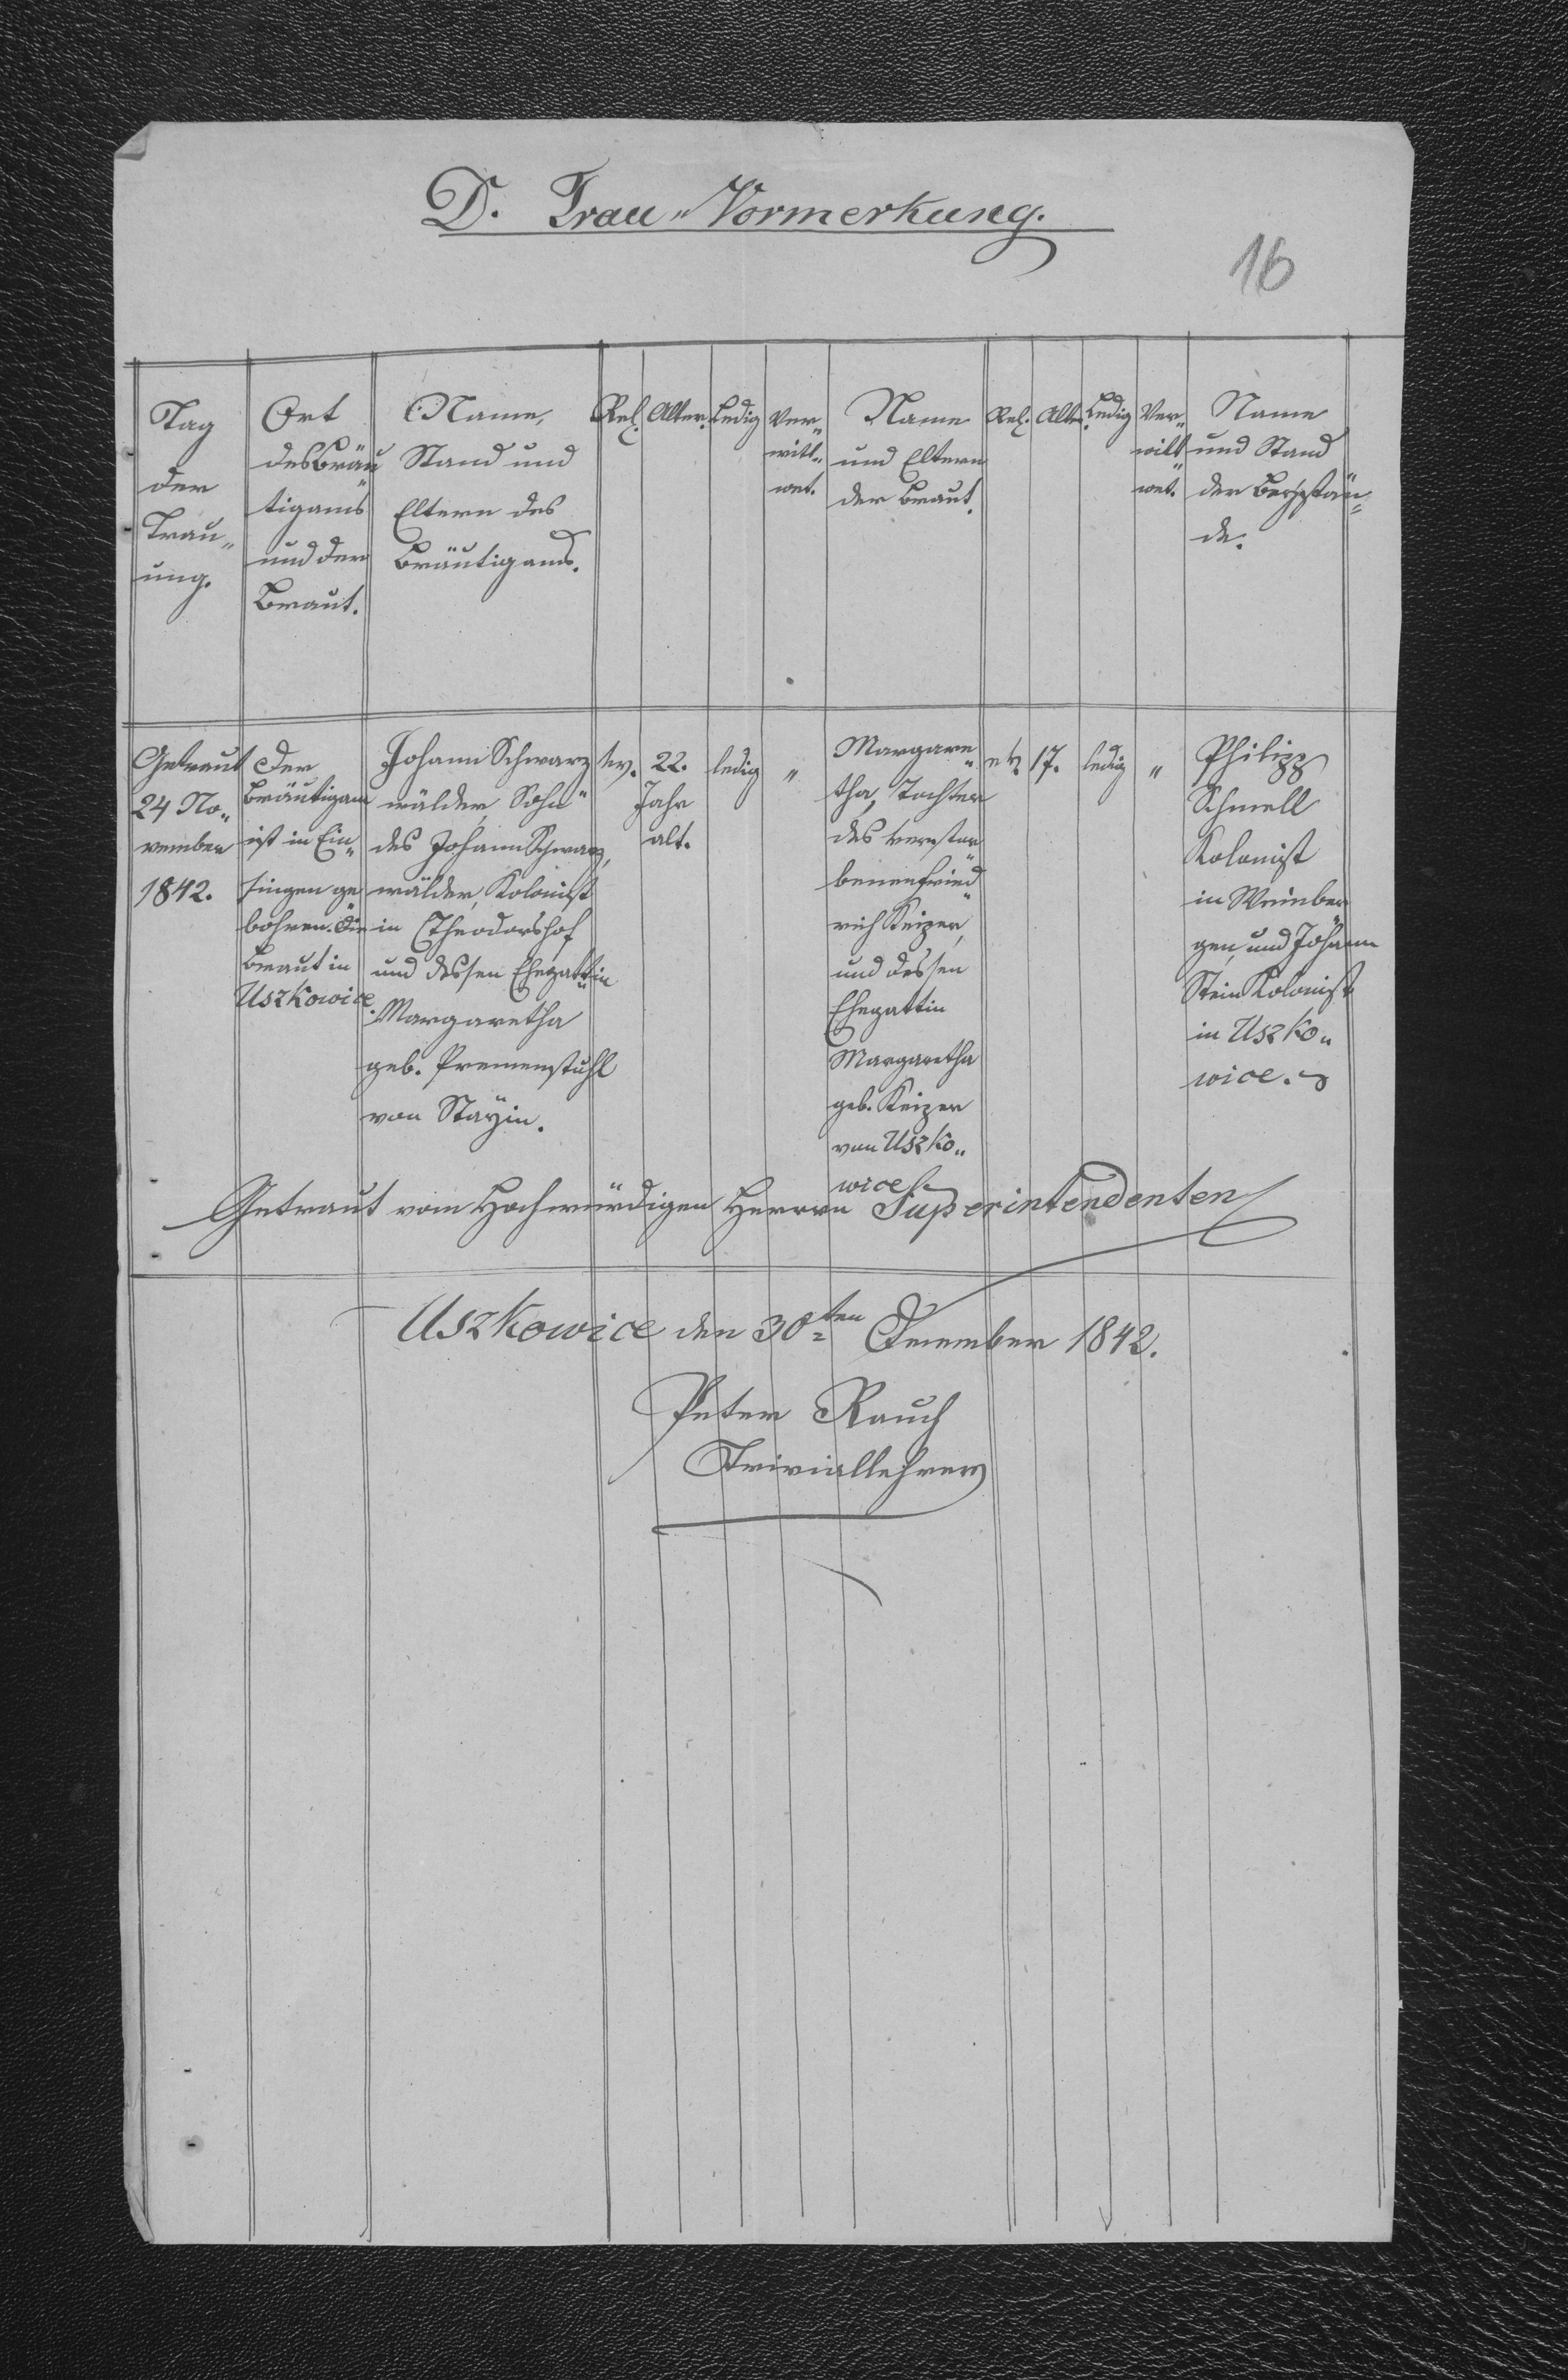 D. Trau„Vormerkung.
16
Tag
der
Trau„
ung.
Ort
des Bräu„
tigams
und der
Braut.
Name,
Stand und
Eltern des
Bräutigams.
Rel.
Alter.
Ledig
Ver„
witt„
wet.
Name
und Eltern
der Braut.
Rel.
Alter.
Ledig
Ver„
witt„
wet.
Name
und Stand
der Beystän„
de.
Getraut
24 No„
vember
1842.
Der
Bräutigam
ist in Ein„
singen ge„
bohren. Die
Braut in
Uszkowice.
Johann Schwarz„
wälder, Sohn
des Johann Schwarz„
wälder, Kolonist
in Theodorshof
und dessen Ehegattin
Margaretha
geb.
von
22.
Jahr
alt.
ledig
„
Margare„
tha, Tochter
des verstor„
benen Fried„
rich Keizer,
und dessen
Ehegattin
Margaretha
geb. Keizer
von Uszko„
wice.
17.
ledig
„
Philipp
Schmell
Kolonist
in Weinber
gen, und Johann
Stein Kolonist
in Uszko„
wice.
Getraut vom Hochwürdigen Herrn Superintendenten
Uszkowice den 30ten Dezember 1842.
Peter Rauch
Triviallehrer